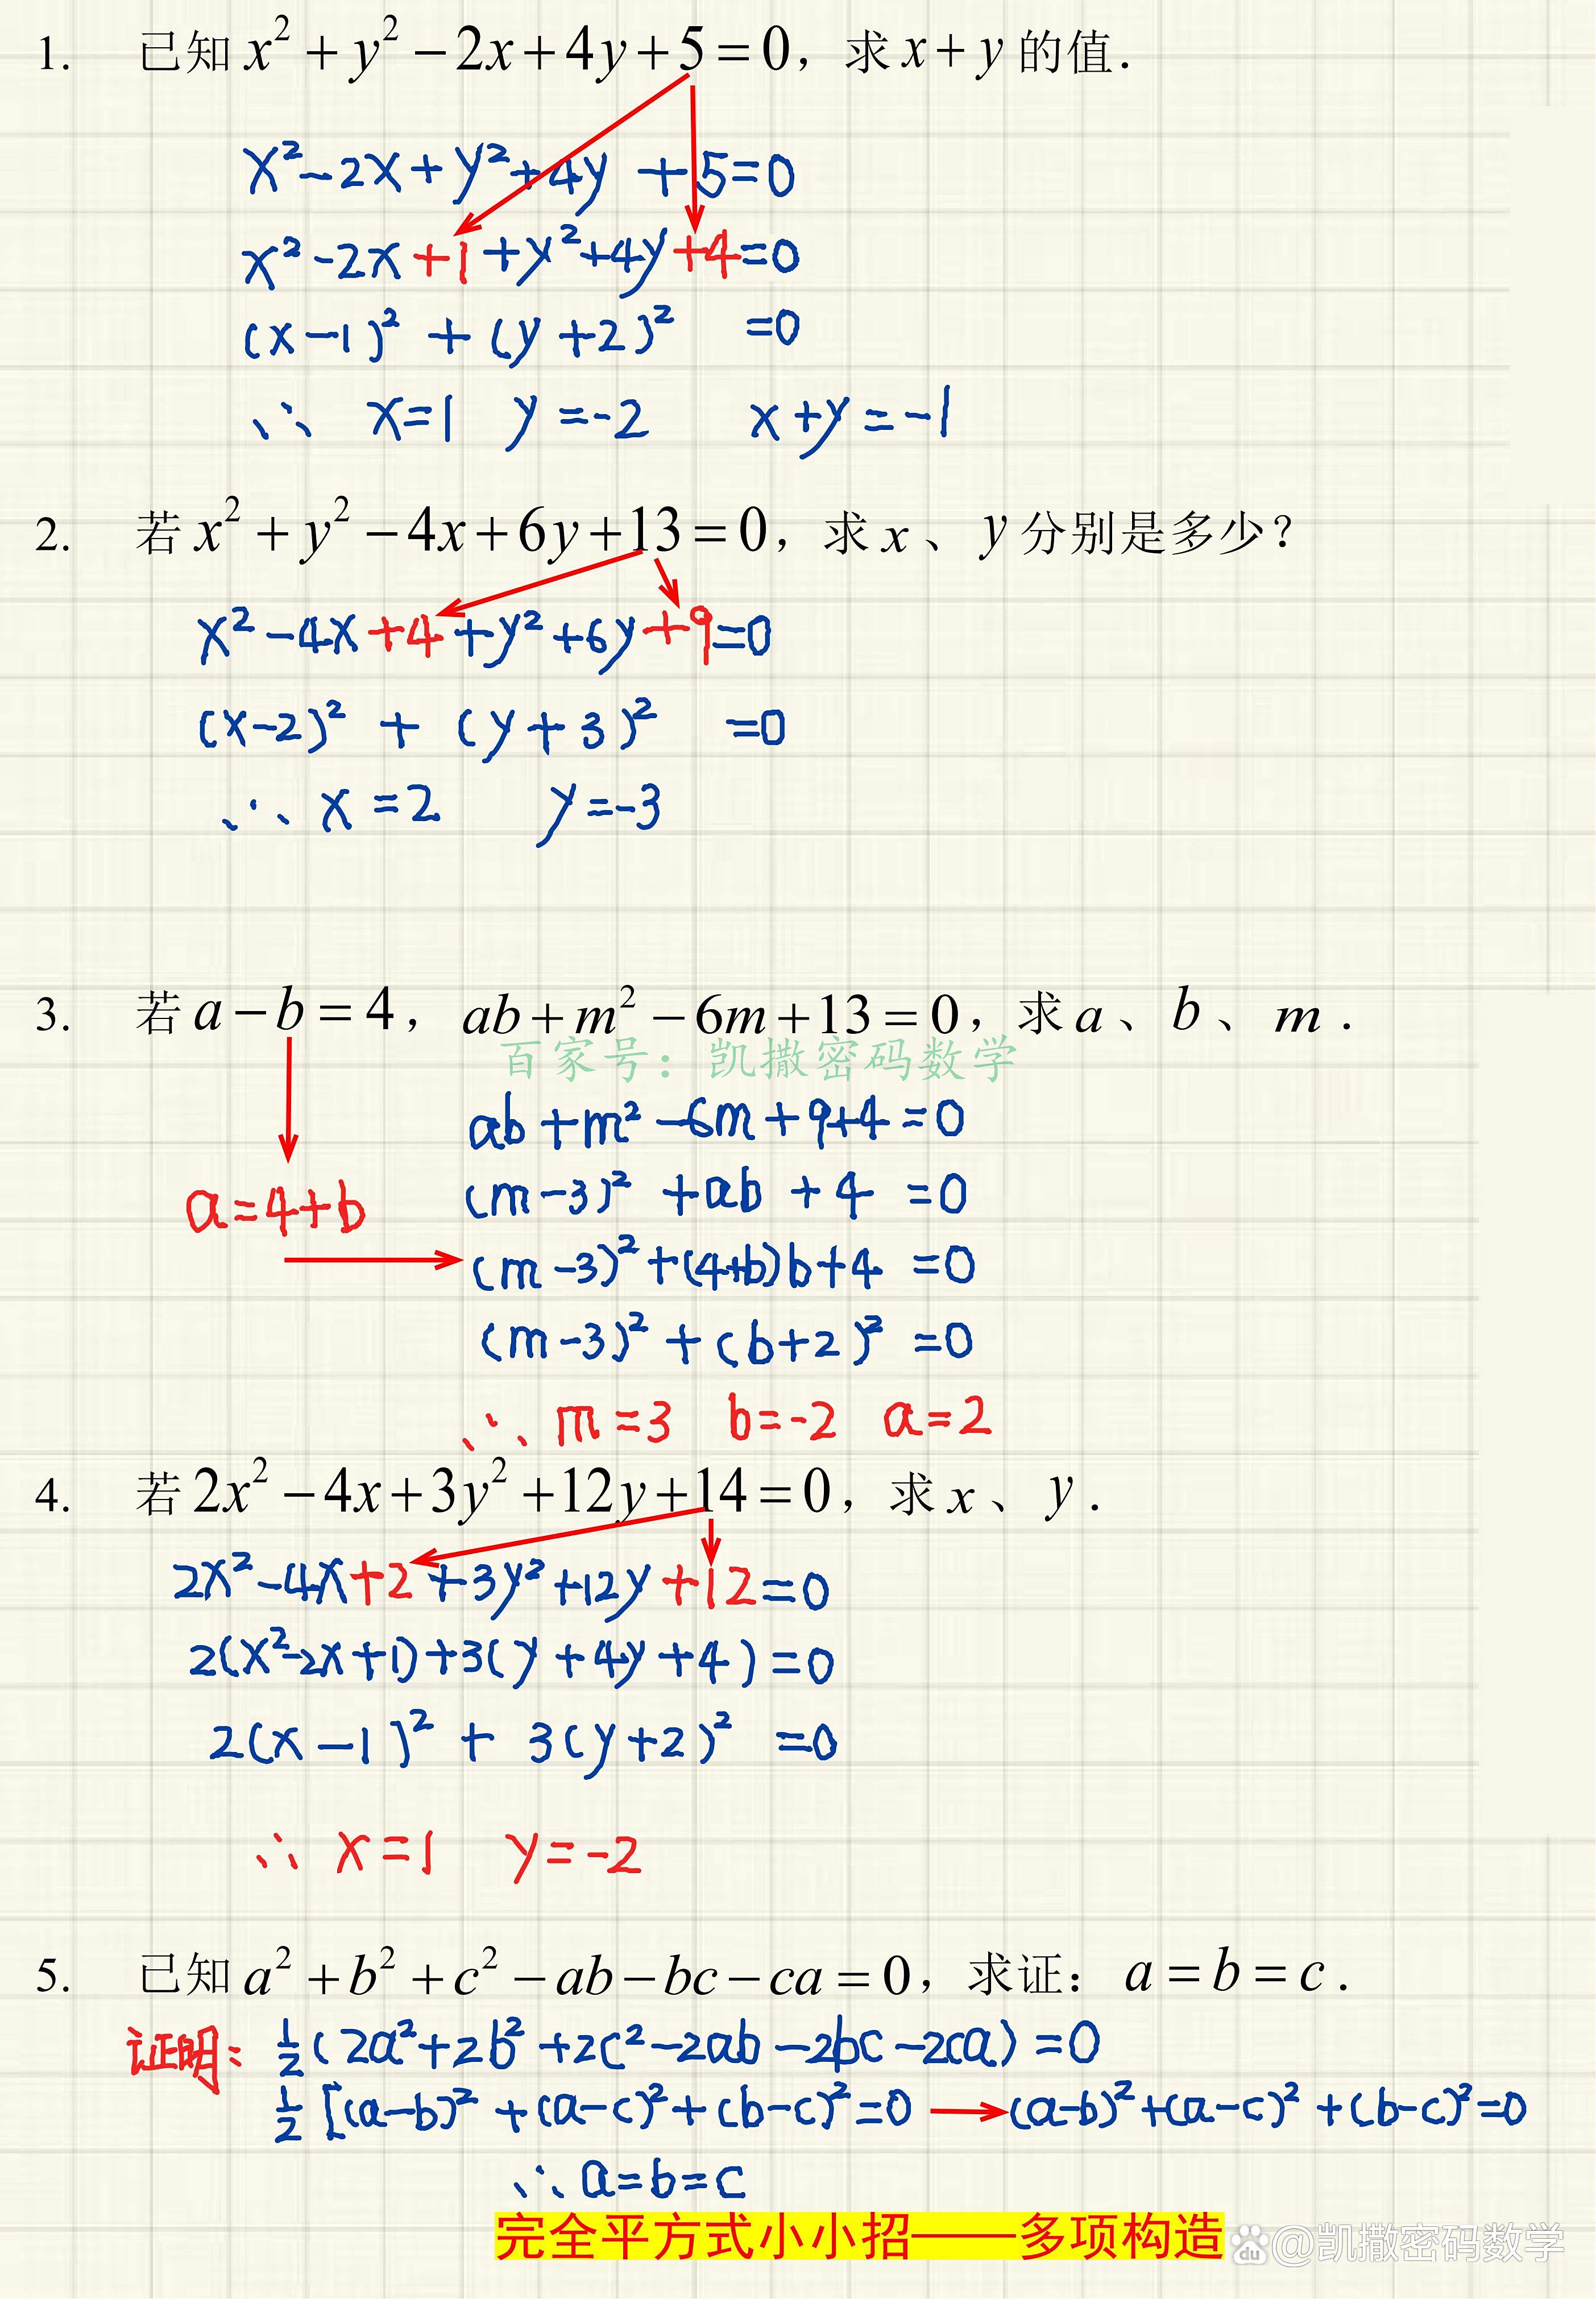 1. 已知 x² + y² − 2x + 4y + 5 = 0，求 x + y 的值.
x²−2x+y²+4y +5=0
x²−2x+1+y²+4y+4=0
(x−1)² + (y+2)² =0
∴ x=1 y=-2 x+y=-1
2. 若 x² + y² − 4x + 6y + 13 = 0，求 x 、 y 分别是多少？
x²−4x+4+y²+6y+9=0
(x−2)² + (y+3)² =0
∴ x=2 y=-3
3. 若 a − b = 4，ab + m² − 6m + 13 = 0，求 a 、 b 、 m .
百家号：凯撒密码数学
ab+m²−6m+9+4=0
(m−3)² +ab +4 =0
a=4+b
(m−3)²+(4+b)b+4 =0
(m−3)² +(b+2)² =0
∴ m=3 b=-2 a=2
4. 若 2x² − 4x + 3y² + 12y + 14 = 0，求 x 、 y .
2x²−4x+2+3y²+12y+12=0
2(x²−2x+1)+3(y+4y+4)=0
2(x−1)² + 3(y+2)² =0
∴ x=1 y=-2
5. 已知 a² + b² + c² − ab − bc − ca = 0，求证：a = b = c .
证明: ½(2a²+2b²+2c²−2ab−2bc−2ca)=0
½[(a−b)²+(a−c)²+(b−c)²=0 → (a−b)²+(a−c)²+(b−c)²=0
∴ a=b=c
完全平方式小小招——多项构造
du @凯撒密码数学